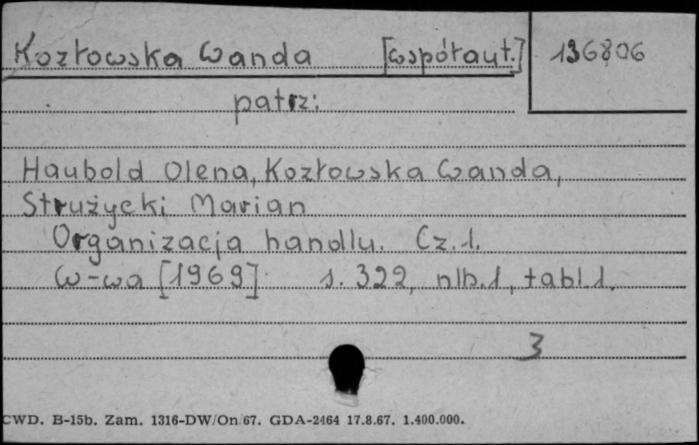 Kozłowska Wanda [współaut.] 136806
patrz:
Haubold Olena, Kozłowska Wanda,
Strużycki Marian
Organizacja handlu. Cz. 1.
W-wa [1969]. s. 322, nlb. 1, tabl. 1.
3
CWD. B-15b. Zam. 1316-DW/On/67. GDA-2464 17.8.67. 1.400.000.